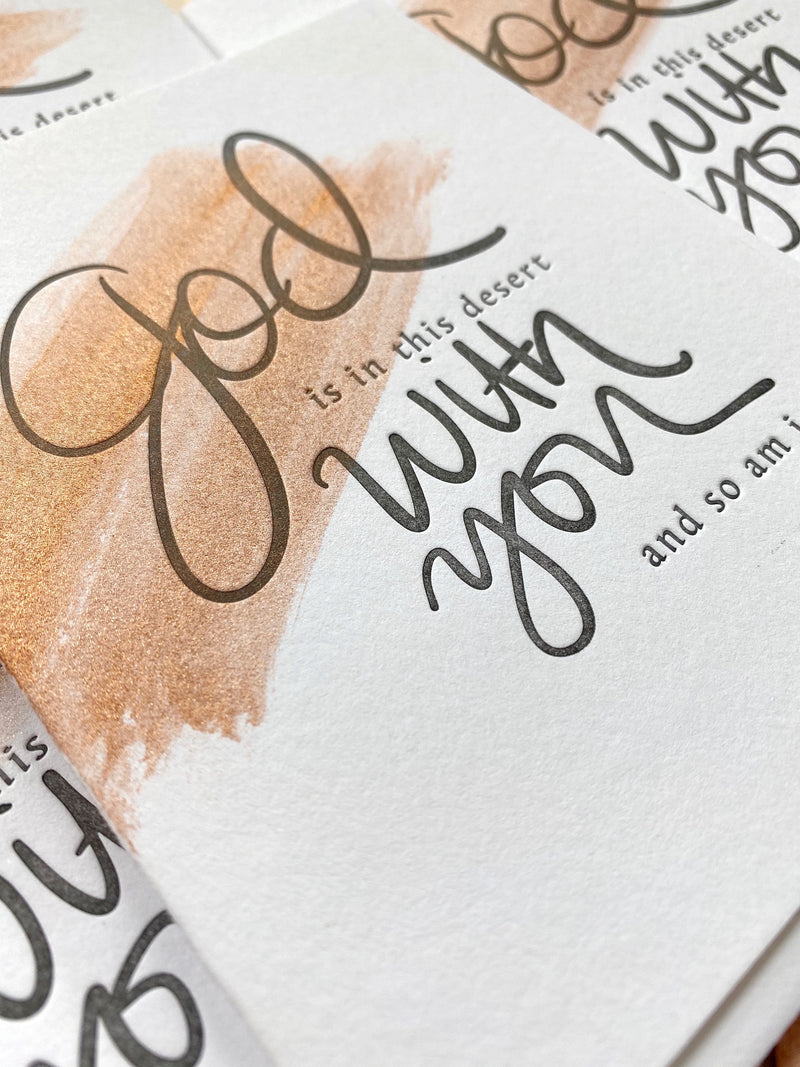 God
is in this desert
with
you
and so am i
is desert
God
is in this desert
with
yo